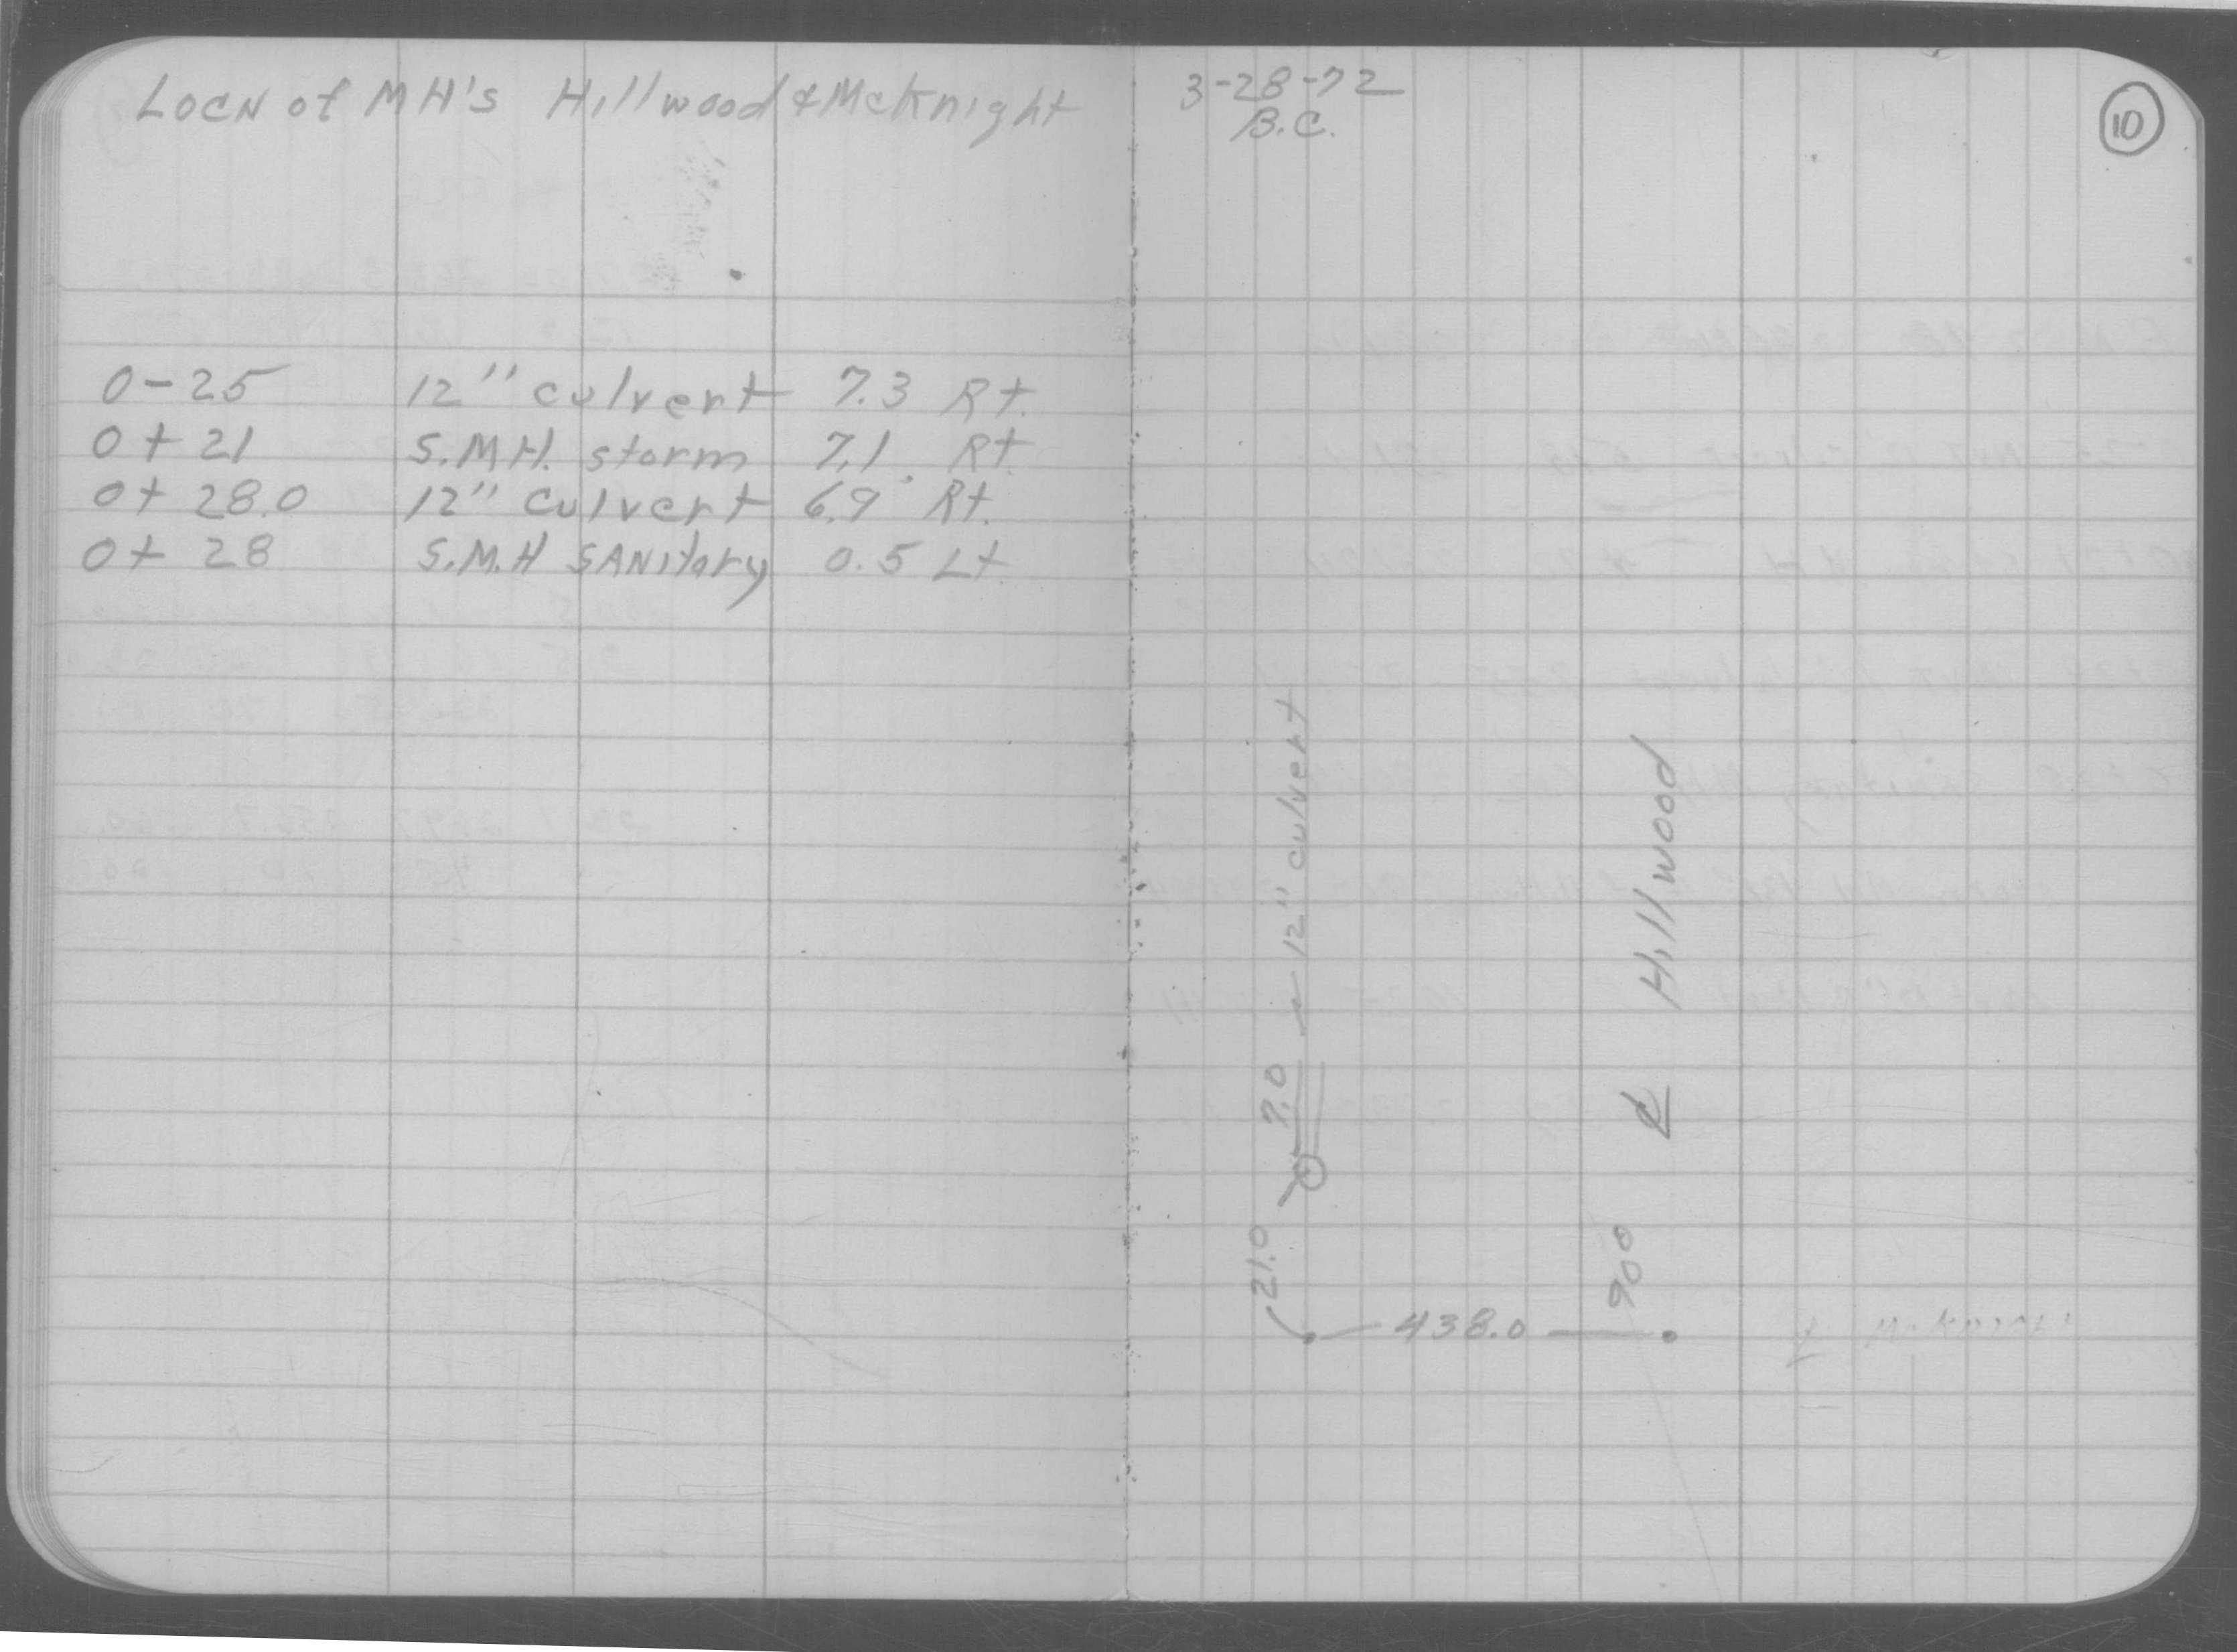 Locn of MH's Hillwood & McKnight
3-28-72
B.C.
10
0-25 12" culvert 7.3 Rt.
0+21 S.M.H. storm 7.1 Rt.
0+28.0 12" culvert 6.9 Rt.
0+28 S.M.H SANitary 0.5 Lt
12" culvert
7.0
21.0
438.0
900
℄ Hillwood